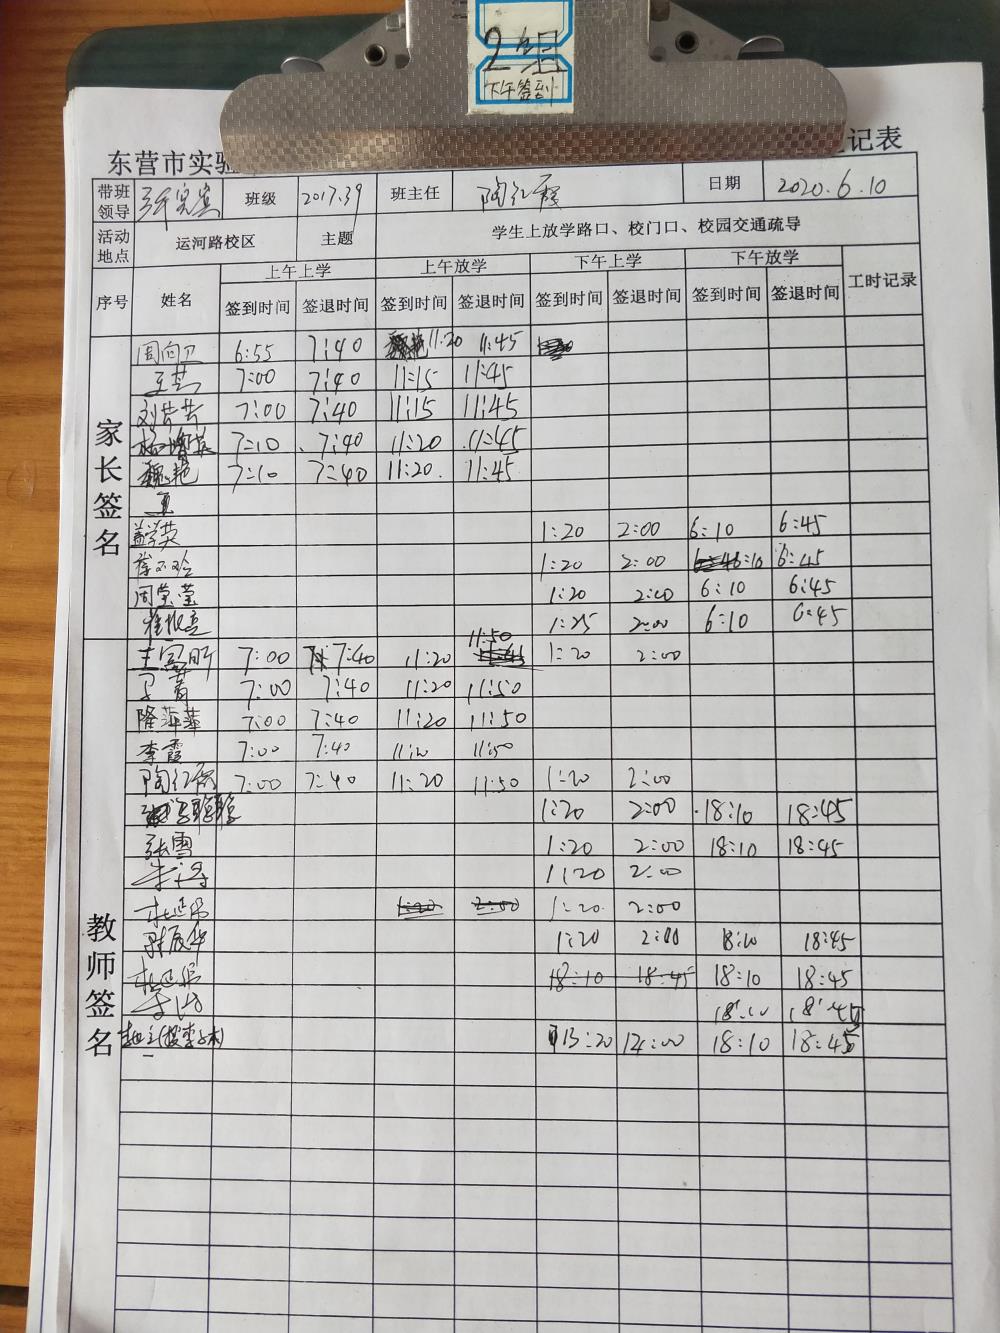 2组
下午签到
东营市实验
记表
带班领导 班级 2017.39 班主任 陶红霞 日期 2020.6.10
活动地点 运河路校区 主题 学生上放学路口、校门口、校园交通疏导
序号 姓名 上午上学 上午放学 下午上学 下午放学 工时记录
签到时间 签退时间 签到时间 签退时间 签到时间 签退时间 签到时间 签退时间
家长签名
周向卫 6:55 7:40 11:20 11:45
王芸 7:00 7:40 11:15 11:45
刘芸芸 7:00 7:40 11:15 11:45
7:10 7:40 11:20 11:45
魏艳 7:10 7:40 11:20 11:45
王
1:20 2:00 6:10 6:45
1:20 2:00 6:10 6:45
周莹莹 1:20 2:00 6:10 6:45
1:25 2:00 6:10 6:45
教师签名
7:00 7:40 11:20 11:50 1:20 2:00
7:00 7:40 11:20 11:50
隆萍萍 7:00 7:40 11:20 11:50
李霞 7:00 7:40 11:20 11:50
陶红霞 7:00 7:40 11:20 11:50 1:20 2:00
1:20 2:00 18:10 18:45
张雪 1:20 2:00 18:10 18:45
1:20 2:00
1:20 2:00 1:20 2:00
1:20 2:00 18:10 18:45
18:10 18:45 18:10 18:45
18:10 18:45
13:20 14:00 18:10 18:45